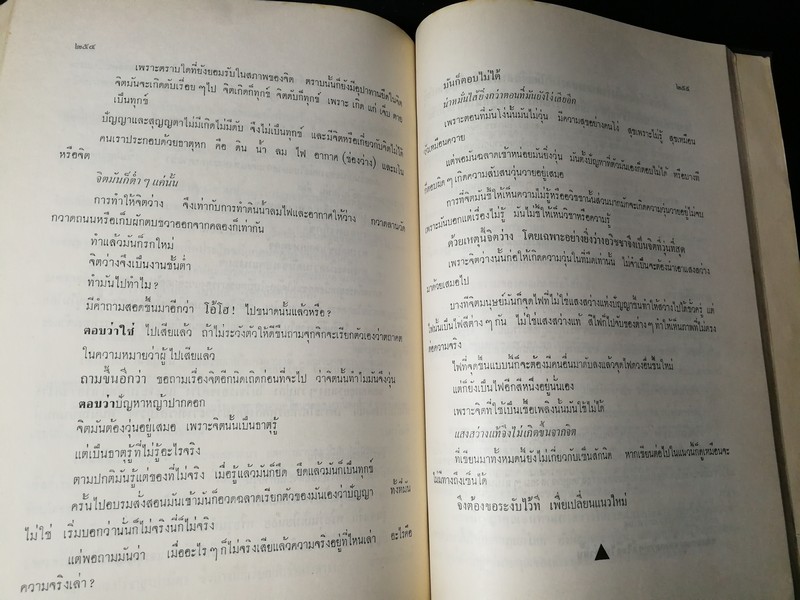 ๒๕๔
เพราะตราบใดที่ยังยอมรับในสภาพของจิต ตราบนั้นก็ยังมีอุปาทานยึดในจิต
จิตมันจะเกิดดับเรื่อย ๆ ไป จิตเกิดก็ทุกข์ จิตดับก็ทุกข์ เพราะ เกิด แก่ เจ็บ ตาย
เป็นทุกข์
ปัญญาและสุญญตาไม่มีเกิดไม่มีดับ จึงไม่เป็นทุกข์ และมีจิตหรือเกี่ยวกับจิตไม่ได้
คนเราประกอบด้วยธาตุหก คือ ดิน น้ำ ลม ไฟ อากาศ (ช่องว่าง) และมโน
หรือจิต
จิตมันก็ต่ำ ๆ แค่นั้น
การทำให้จิตว่าง จึงเท่ากับการทำดินน้ำลมไฟและอากาศให้ว่าง กวาดลานวัด
กวาดถนนหรือเก็บผักตบชวาออกจากคลองก็เท่ากัน
ทำแล้วมันก็รกใหม่
จิตว่างจึงเป็นงานชั้นต่ำ
ทำมันไปทำไม ?
มีคำถามสอดขึ้นมาอีกว่า โอ้โฮ ! ไปขนาดนั้นแล้วหรือ ?
ตอบว่าใช่ ไปเสียแล้ว ถ้าไม่ระวังตัวให้ดีขืนถามจุกจิกจะเรียกตัวเองว่าตถาคต
ในความหมายว่าผู้ไปเสียแล้ว
ถามขึ้นอีกว่า ขอถามเรื่องจิตอีกนิดเถิดก่อนที่จะไป ว่าจิตนั้นทำไมมันจึงวุ่น
ตอบว่าปัญหาหญ้าปากคอก
จิตมันต้องวุ่นอยู่เสมอ เพราะจิตนั้นเป็นธาตุรู้
แต่เป็นธาตุรู้ที่ไม่รู้อะไรจริง
ตามปกติมันรู้แต่ของที่ไม่จริง เมื่อรู้แล้วมันก็ยึด ยึดแล้วมันก็เป็นทุกข์
ครั้นไปอบรมสั่งสอนมันเข้ามันก็อวดฉลาดเรียกตัวของมันเองว่าปัญญา ทั้งที่มัน
ไม่ใช่ เริ่มบอกว่านั่นก็ไม่จริงนี่ก็ไม่จริง
แต่พอถามมันว่า เมื่ออะไร ๆ ก็ไม่จริงเสียแล้วความจริงอยู่ที่ไหนเล่า อะไรคือ
ความจริงเล่า ?
๒๕๕
มันก็ตอบไม่ได้
น่าหมั่นไส้ยิ่งกว่าตอนที่มันยังโง่เสียอีก
เพราะตอนที่มันโง่นั้นมันไม่วุ่น มีความสุขอย่างคนโง่ สุขเพราะไม่รู้ สุขเหมือน
เหมือนควาย
แต่พอมันฉลาดเข้าหน่อยมันยิ่งวุ่น มันตั้งปัญหาที่ตัวมันเองก็ตอบไม่ได้ หรือบางที
ก็ตอบผิด ๆ เกิดความสับสนวุ่นวายอยู่เสมอ
การที่จิตมันชี้ให้เห็นความไม่รู้หรืออวิชชานั้นส่วนมากมักจะเกิดความวุ่นวายอยู่ไม่จบ
เพราะมันบอกแต่เรื่องไม่รู้ มันไม่ชี้ให้เห็นวิชาหรือความรู้
ด้วยเหตุนี้จิตว่าง โดยเฉพาะอย่างยิ่งว่างอวิชชาจึงเป็นจิตที่วุ่นที่สุด
เพราะจิตว่างนั้นก่อให้เกิดความวุ่นในที่มืดเท่านั้น ไม่จำเป็นจะต้องนำเอาแสงสว่าง
มาด้วยเสมอไป
บางทีจิตมนุษย์มันก็จุดไฟที่ไม่ใช่แสงสว่างแห่งปัญญาขึ้นทำให้สว่างไปได้ชั่วครู่ แต่
ไฟนั้นเป็นไฟสีต่าง ๆ กัน ไม่ใช่แสงสว่างแท้ สีไฟก็ไปจับของต่าง ๆ ทำให้เห็นภาพที่ไม่ตรง
ต่อความจริง
ไฟที่จุดขึ้นแบบนี้ก็จะต้องมีคนอื่นมาดับลงแล้วจุดไฟดวงอื่นขึ้นใหม่
แต่ก็ยังเป็นไฟอีกสีหนึ่งอยู่นั่นเอง
เพราะจิตที่ใช้เป็นเชื้อเพลิงนั้นมันใช้ไม่ได้
แสงสว่างแท้จึงไม่เกิดขึ้นจากจิต
ที่เขียนมาทั้งหมดนี้ยังไม่เกี่ยวกับเซ็นสักนิด หากเขียนต่อไปในแนวนี้ก็ดูเหมือนจะ
ไม่มีทางถึงเซ็นได้
จึงต้องขอระงับไว้ที เพื่อเปลี่ยนแนวใหม่